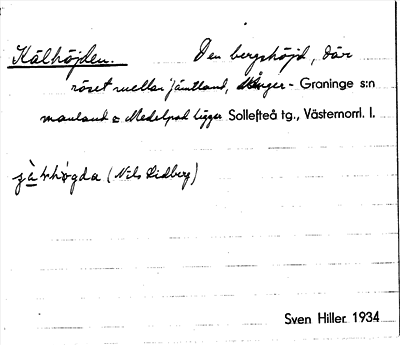 Kälhöjden. Den bergshöjd, där
röset mellan Jämtland, Ånger- Graninge s:n
manland o Medelpad ligger Sollefteå tg., Västernorrl. l.
(Nils Lidberg)
Sven Hiller 1934